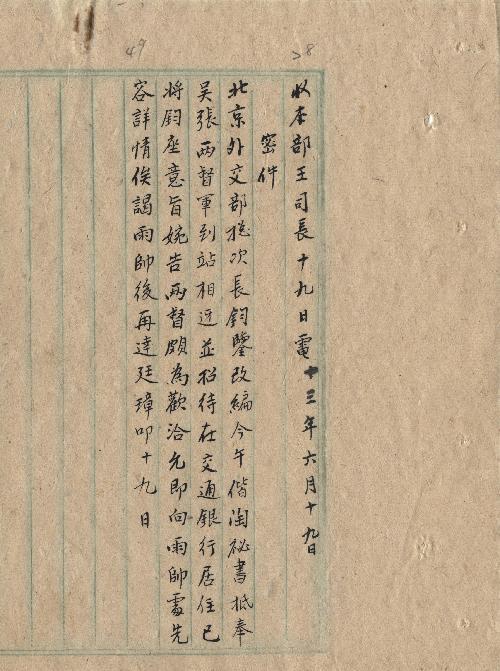 28
49
收本部王司長十九日電 十三年六月十九日
密件
北京外交部总次長鈞鑒改編今午偕淘祕書抵奉
吴張兩督軍到站相迓並招待在交通銀行居住已
將鈞座意旨婉告兩督頗為歡洽允即向雨帥處先
容詳情俟謁雨帥後再達廷璋叩十九日